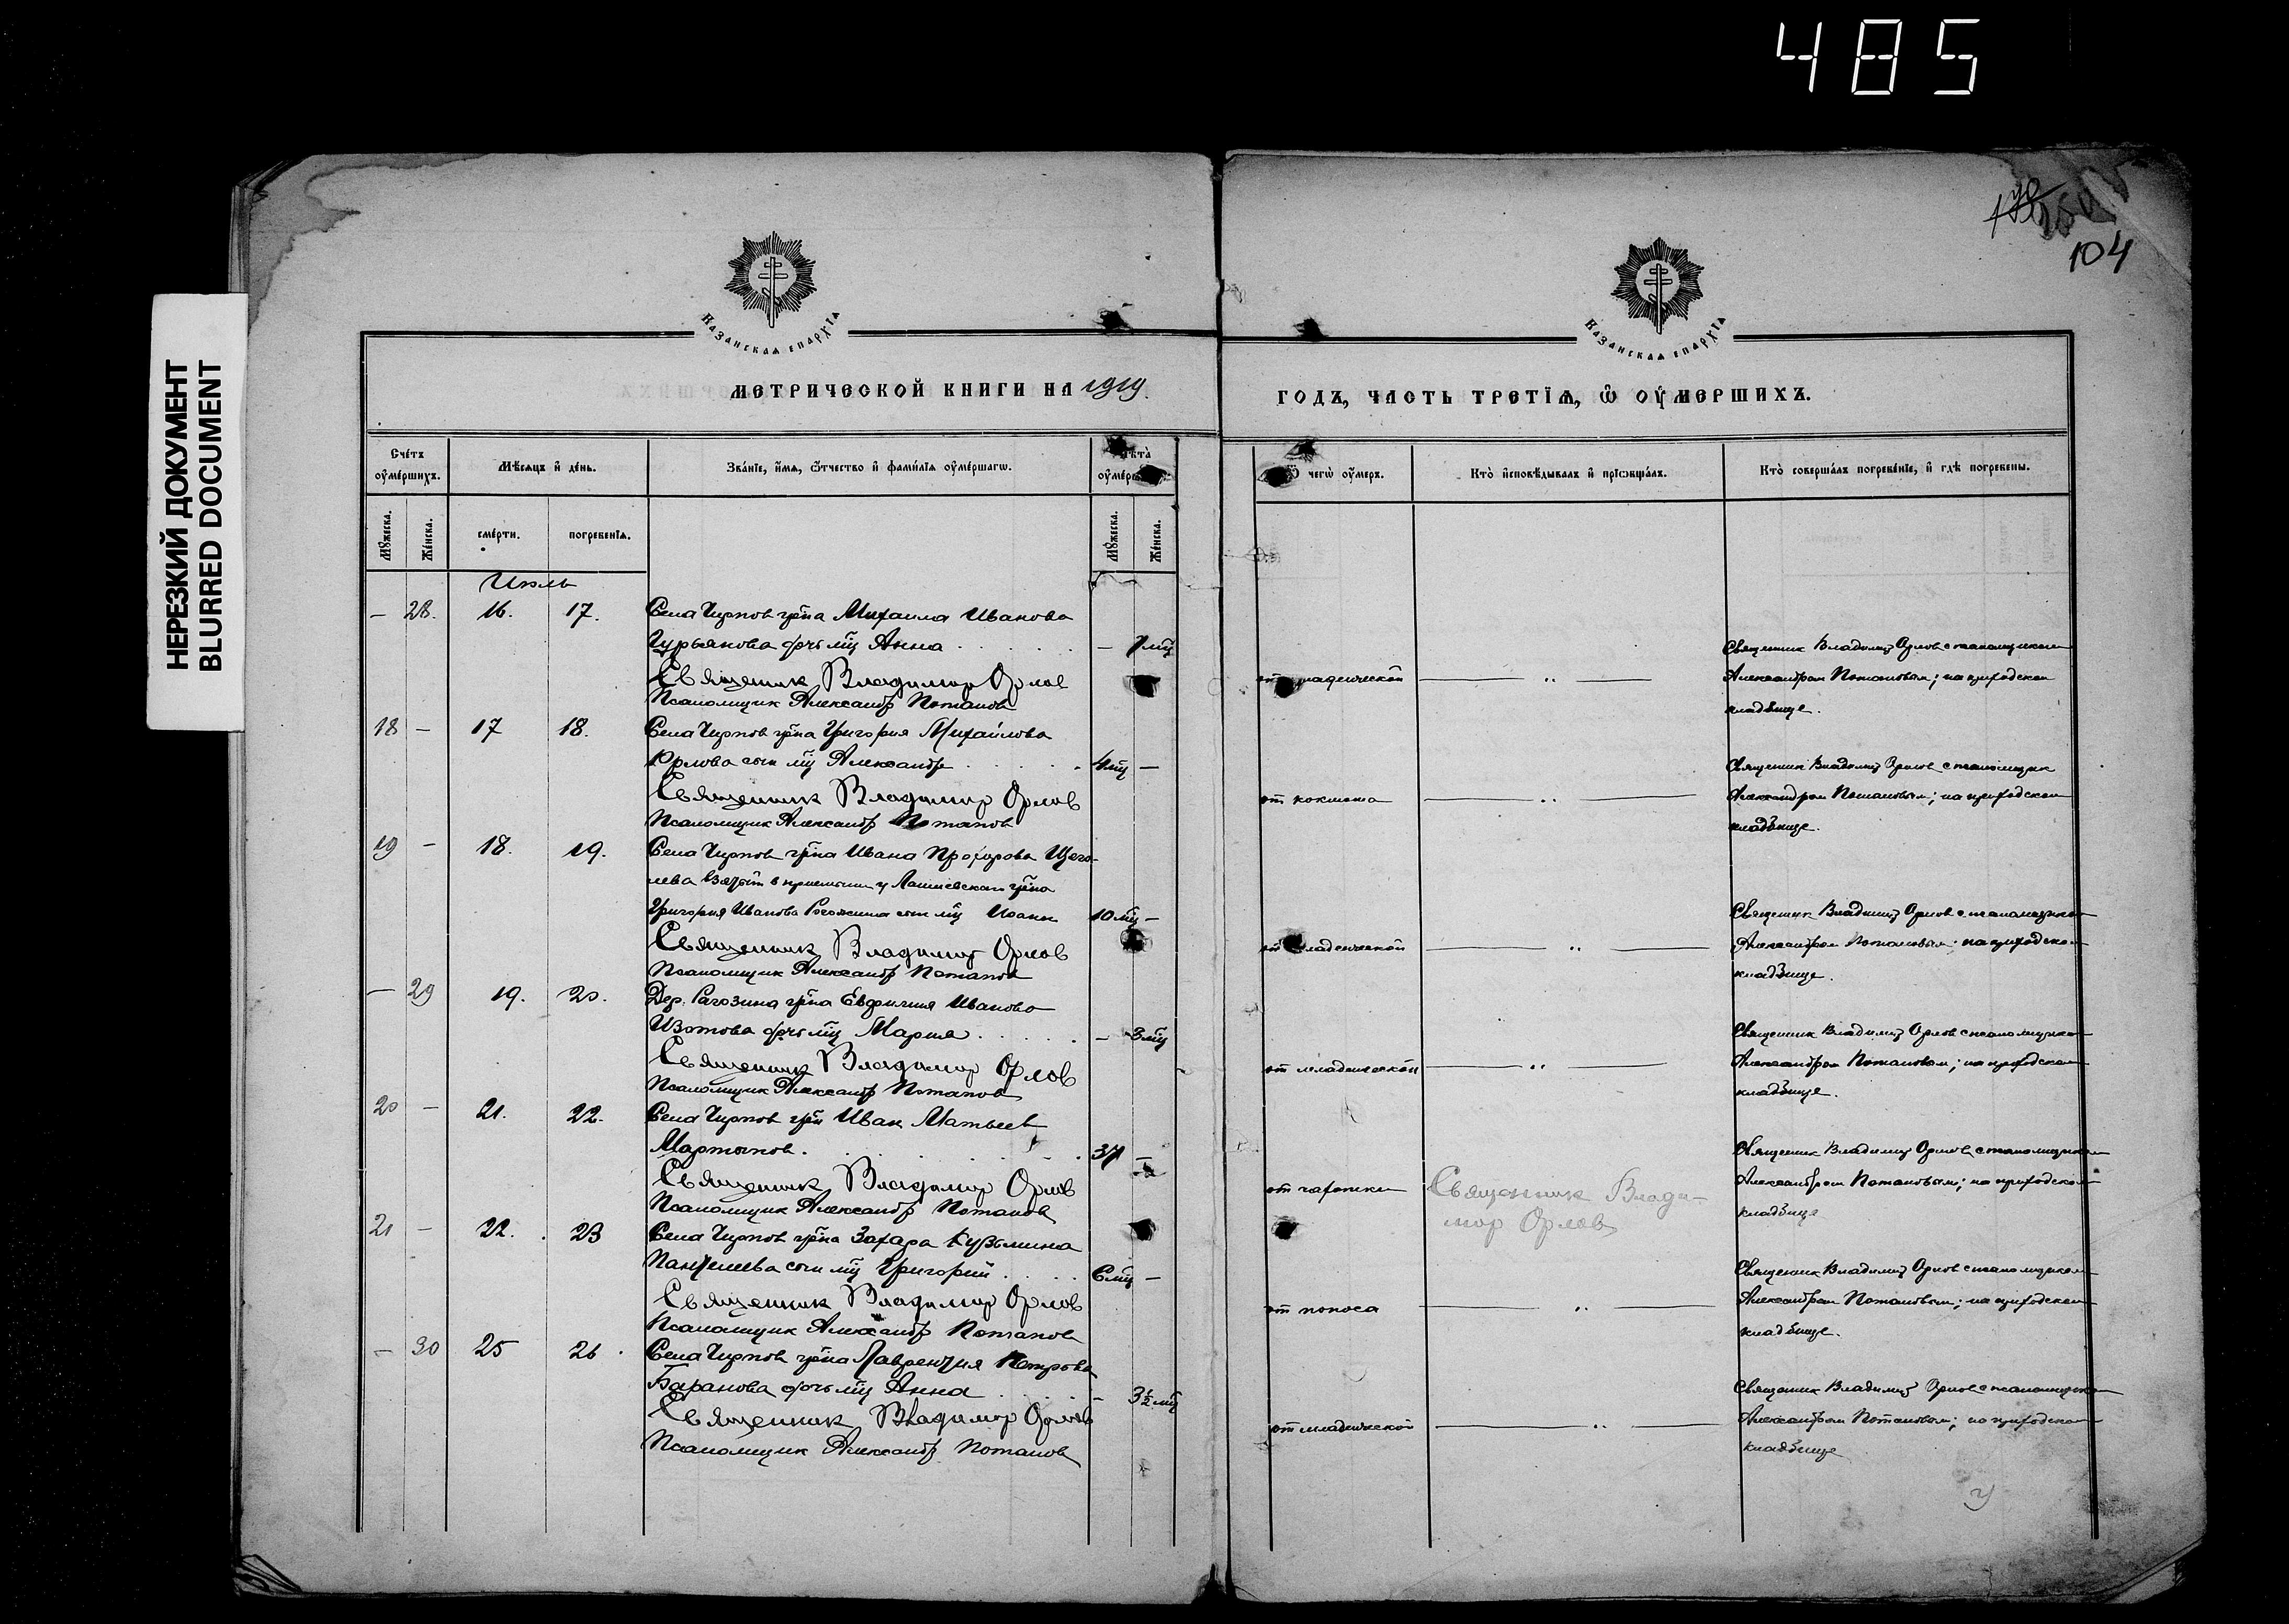 485
НЕРЕЗКИЙ ДОКУМЕНТ
BLURRED DOCUMENT
104
КАЗАНСКАЯ ЕПАРХІЯ
КАЗАНСКАЯ ЕПАРХІЯ
МЕТРИЧЕСКОЙ КНИГИ НА 1919
ГОДЪ, ЧАСТЬ ТРЕТІЯ, Ѡ ОУМЕРШИХЪ.
Счетъ оумершихъ.
Мѣсяцъ и день.
Званіе, имя, ѿчество и фамилія оумершагѡ.
Ѿ чегѡ оумеръ.
Кто исповѣдывалъ и пріобщалъ.
Кто совершалъ погребеніе, и гдѣ погребены.
Мꙋжеска.
Женска.
смерти.
погребенія.
Мꙋжеска.
Женска.
Июль
— 28. 16. 17. Села Чирпов гр̃на Михаила Иванова
Гурьянова дочь мц Анна — 7 мц
Священник Владимир Орлов
Псаломщик Александр Потапов
Священник Владимир Орлов с псаломщиком
Александром Потаповым; на приходском
кладбище.
18 — 17 18. Села Чирпов гр̃на Григория Михайлова
Орлова сын мц Александр 4 мц —
Священник Владимир Орлов
Псаломщик Александр Потапов
от коклюша
Священник Владимир Орлов с псаломщик
Александром Потаповым; на приходском
кладбище.
19 — 18. 19. Села Чирпов гр̃на Ивана Прохорова Щего-
лева взятый в приемыши у Лаишевскаго гр̃на
Григория Иванова Рогожина сын мц Иоанн 10 мц —
Священник Владимир Орлов
Псаломщик Александр Потапов
от младенческой
Священник Владимир Орлов с псаломщиком
Александром Потаповым; на приходском
кладбище.
— 29 19. 20. Дер. Рагозина гр̃на Евдокима Иванова
Изотова дочь мц Мария — 3 мц
Священник Владимир Орлов
Псаломщик Александр Потапов
от младенческой
Священник Владимир Орлов с псаломщиком
Александром Потаповым; на приходском
кладбище.
20 — 21. 22. Села Чирпов гр̃н Иван Матвеев
Мартынов. 37 —
Священник Владимир Орлов
Псаломщик Александр Потапов
от чахотки
Священник Влади-
мир Орлов
Священник Владимир Орлов с псаломщиком
Александром Потаповым; на приходском
кладбище
21 — 22. 23 Села Чирпов гр̃на Захара Кузьмина
Пантелеева сын мц Григорий 6 мц —
Священник Владимир Орлов
Псаломщик Александр Потапов
от поноса
Священник Владимир Орлов с псаломщиком
Александром Потаповым; на приходском
кладбище.
— 30 25 26. Села Чирпов гр̃на Лаврентия Петрова
Баранова дочь мц Анна — 3½ мц
Священник Владимир Орлов
Псаломщик Александр Потапов
от младенческой
Священник Владимир Орлов с псаломщиком
Александром Потаповым; на приходском
кладбище